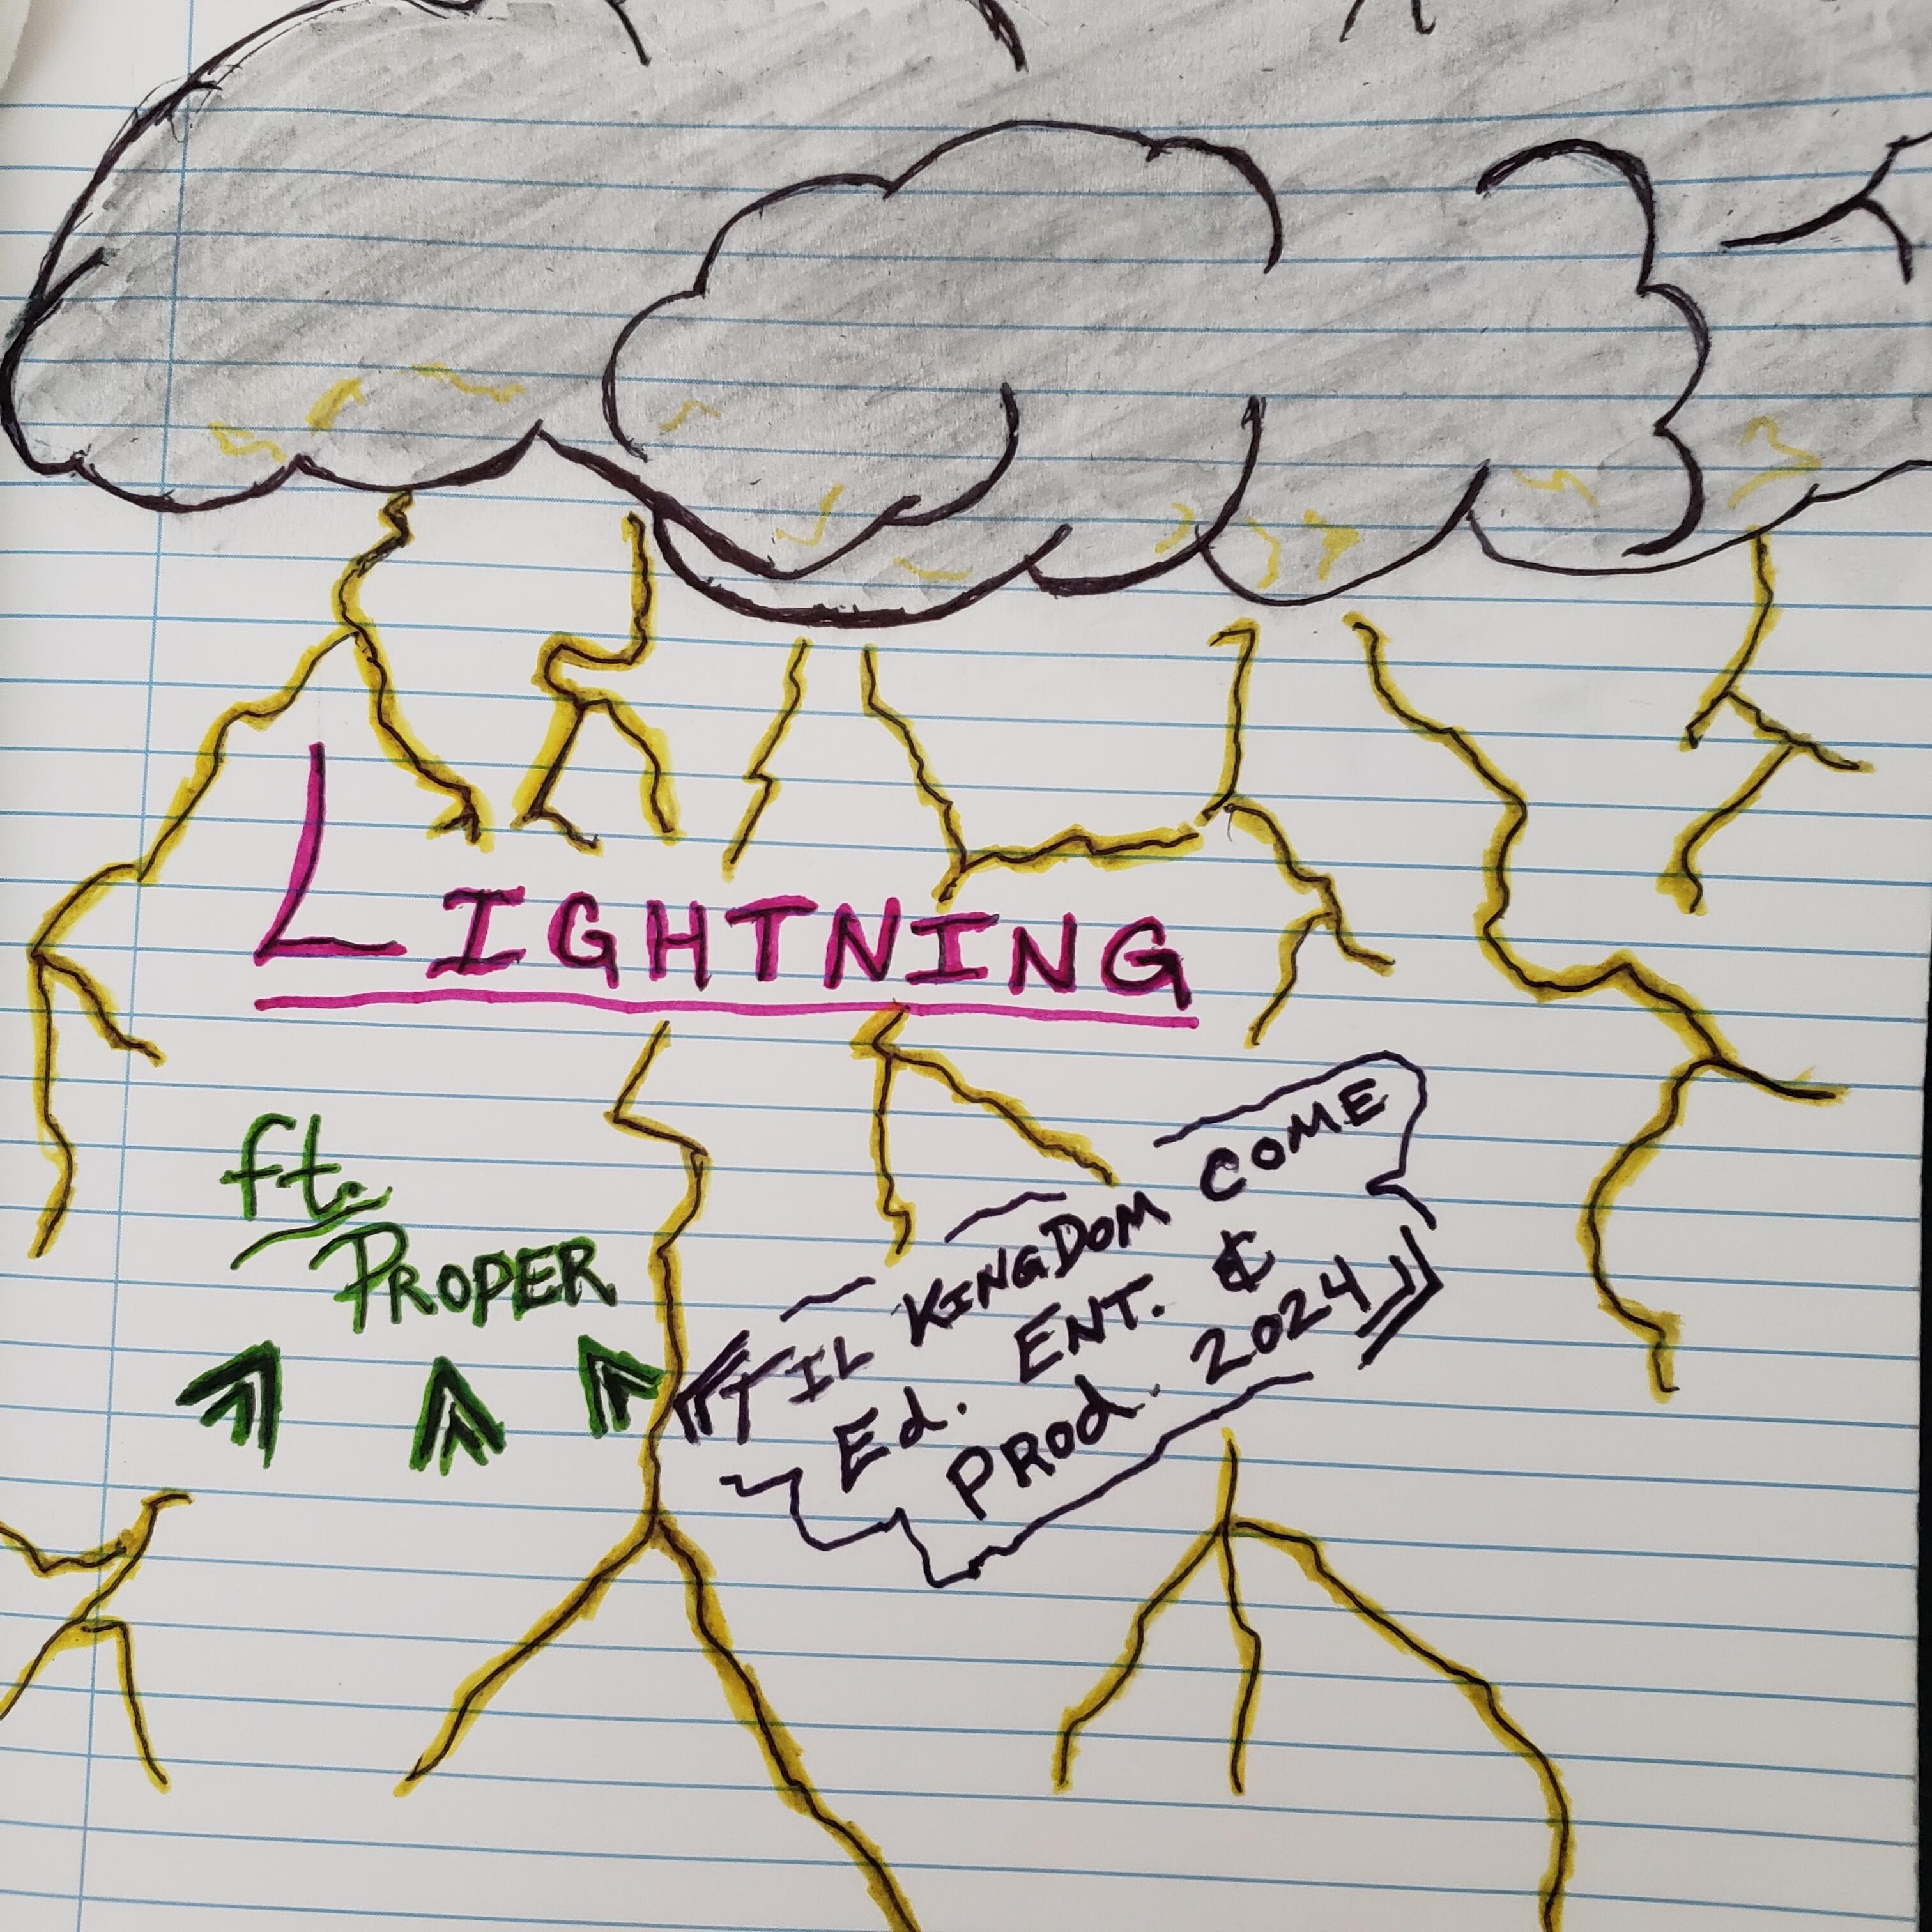 LIGHTNING
ft.
PROPER
TIL KINGDOM COME
Ed. ENT. &
PROd. 2024